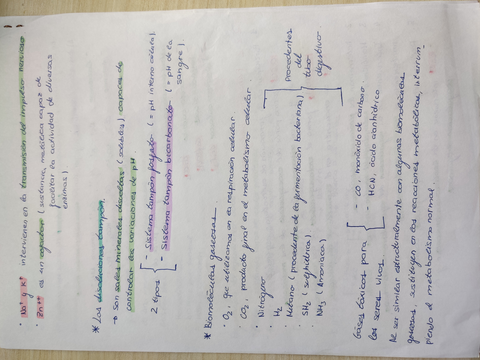 · Na⁺ y K⁺ intervienen en la transmisión del impulso nervioso
· Zn⁺⁺ es un cofactor (sustancia metálica capaz de
facilitar la actividad de diversas
enzimas)
* Las disoluciones tampón
→ Son sales minerales disueltas (solubles) capaces de
controlar las variaciones de pH
2 tipos
- Sistema tampón fosfato (= pH interno celular)
- Sistema tampón bicarbonato (= pH de la
sangre)
* Biomoléculas gaseosas
· O₂, que utilizamos en la respiración celular
· CO₂, producto final en el metabolismo celular
· Nitrógeno
· H₂
· Metano (procedente de la fermentación bacteriana)
· SH₂ (sulfhídrico)
· NH₃ (Amoniaco)
Procedentes
del
tubo
digestivo
Gases tóxicos para
los seres vivos
- CO, monóxido de carbono
- HCN, ácido cianhídrico
Al ser similar estructuralmente con algunas biomoléculas
gaseosas, sustituyen en las reacciones metabólicas, interrum
piendo el metabolismo normal.